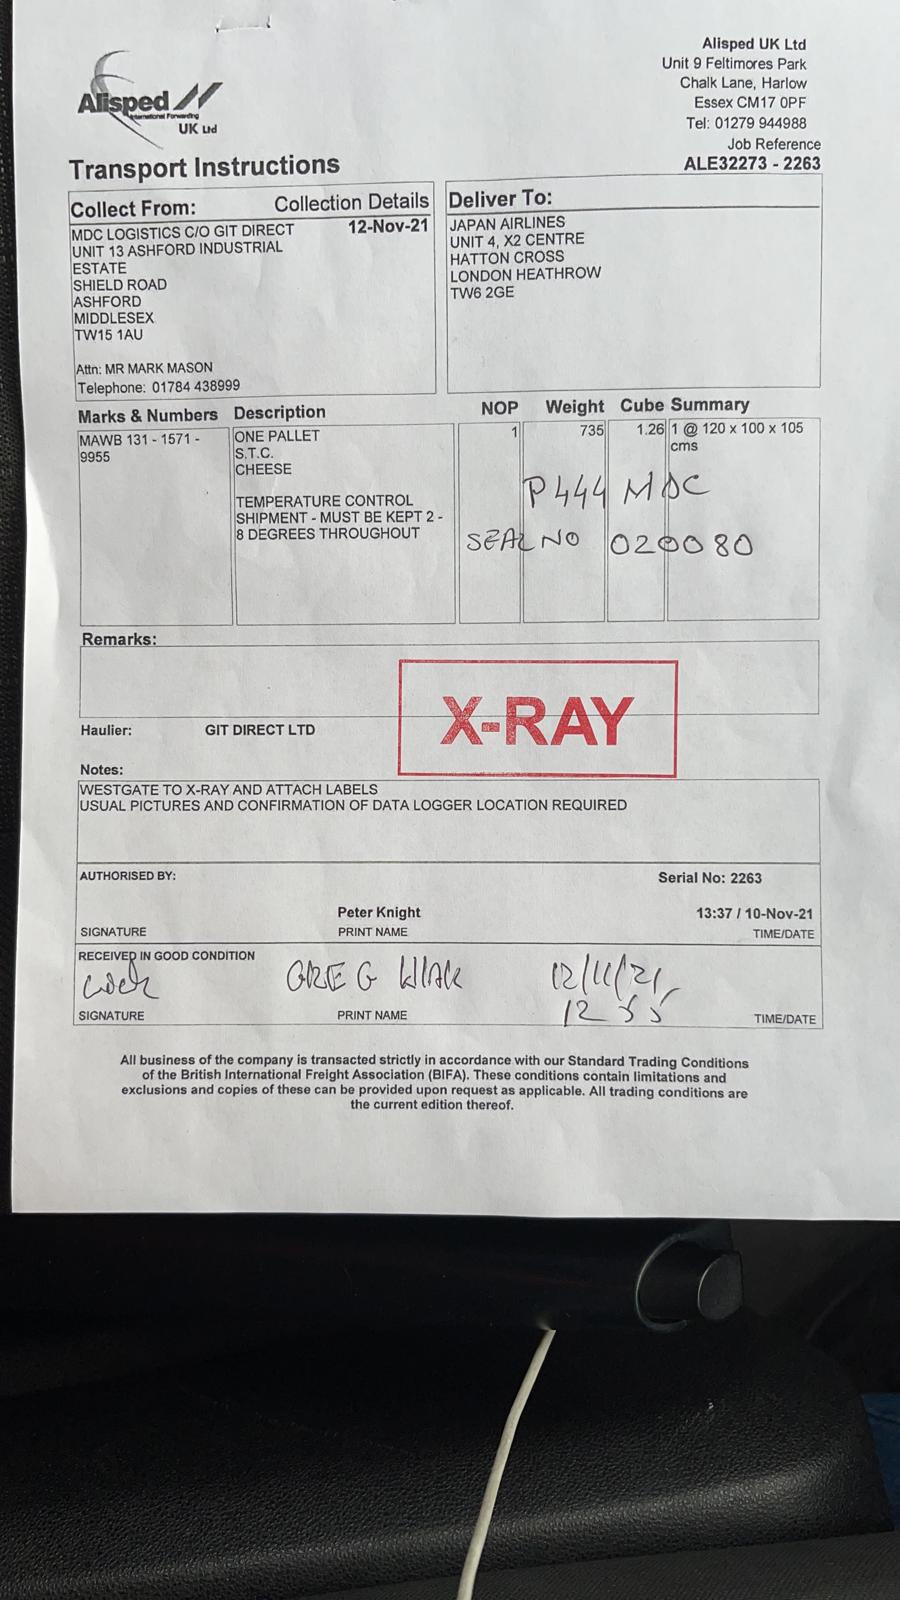 Alisped
International Forwarding
UK Ltd
Alisped UK Ltd
Unit 9 Feltimores Park
Chalk Lane, Harlow
Essex CM17 0PF
Tel: 01279 944988
Job Reference
ALE32273 - 2263
Transport Instructions
Collect From: Collection Details
MDC LOGISTICS C/O GIT DIRECT 12-Nov-21
UNIT 13 ASHFORD INDUSTRIAL
ESTATE
SHIELD ROAD
ASHFORD
MIDDLESEX
TW15 1AU
Attn: MR MARK MASON
Telephone: 01784 438999
Deliver To:
JAPAN AIRLINES
UNIT 4, X2 CENTRE
HATTON CROSS
LONDON HEATHROW
TW6 2GE
Marks & Numbers Description NOP Weight Cube Summary
MAWB 131 - 1571 -
9955
ONE PALLET
S.T.C.
CHEESE
TEMPERATURE CONTROL
SHIPMENT - MUST BE KEPT 2 -
8 DEGREES THROUGHOUT
1 735 1.26 1 @ 120 x 100 x 105
cms
P444 MDC
SEAL NO 020080
Remarks:
X-RAY
Haulier: GIT DIRECT LTD
Notes:
WESTGATE TO X-RAY AND ATTACH LABELS
USUAL PICTURES AND CONFIRMATION OF DATA LOGGER LOCATION REQUIRED
AUTHORISED BY: Serial No: 2263
Peter Knight 13:37 / 10-Nov-21
SIGNATURE PRINT NAME TIME/DATE
RECEIVED IN GOOD CONDITION
GREG 12/11/21
12 55
SIGNATURE PRINT NAME TIME/DATE
All business of the company is transacted strictly in accordance with our Standard Trading Conditions
of the British International Freight Association (BIFA). These conditions contain limitations and
exclusions and copies of these can be provided upon request as applicable. All trading conditions are
the current edition thereof.